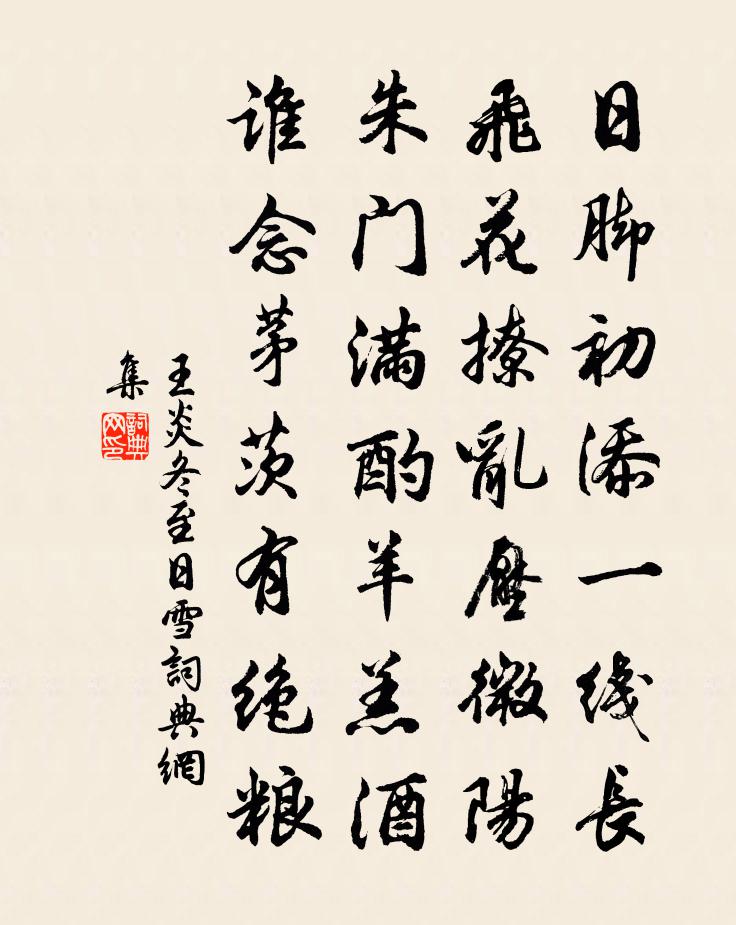 日脚初添一线長
飛花撩亂壓微陽
朱门满酌羊羔酒
谁念茅茨有绝粮
王炎冬至日雪詞典網
集
詞典
网印